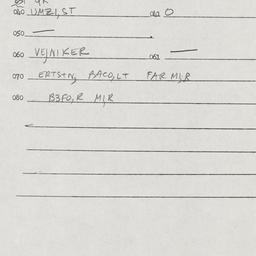 040 UMZI,ST 042 O
050 —
060 VEJNIKER 063 —
070 ERTSTN, BACO,LT FAR MJR
080 B3FO,R MJR